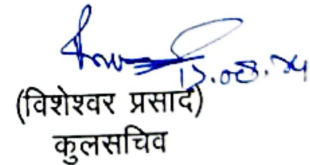 13.08.24
(विशेश्वर प्रसाद)
कुलसचिव